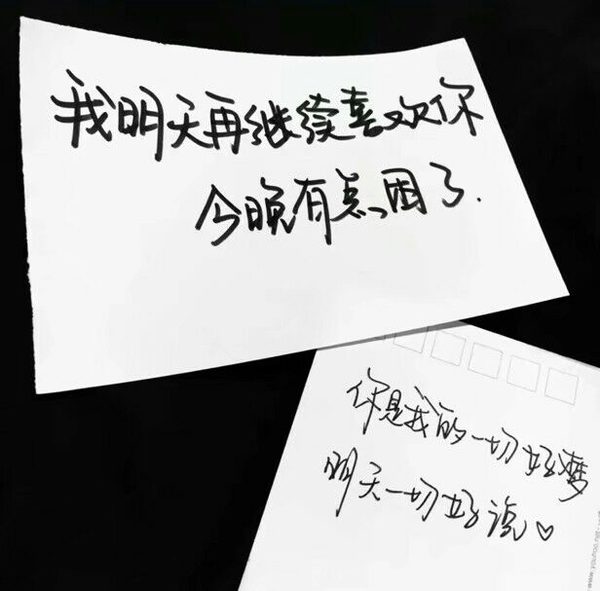 我明天再继续喜欢你
今晚有点困了.
你是我的一切好梦
明天一切好说♡